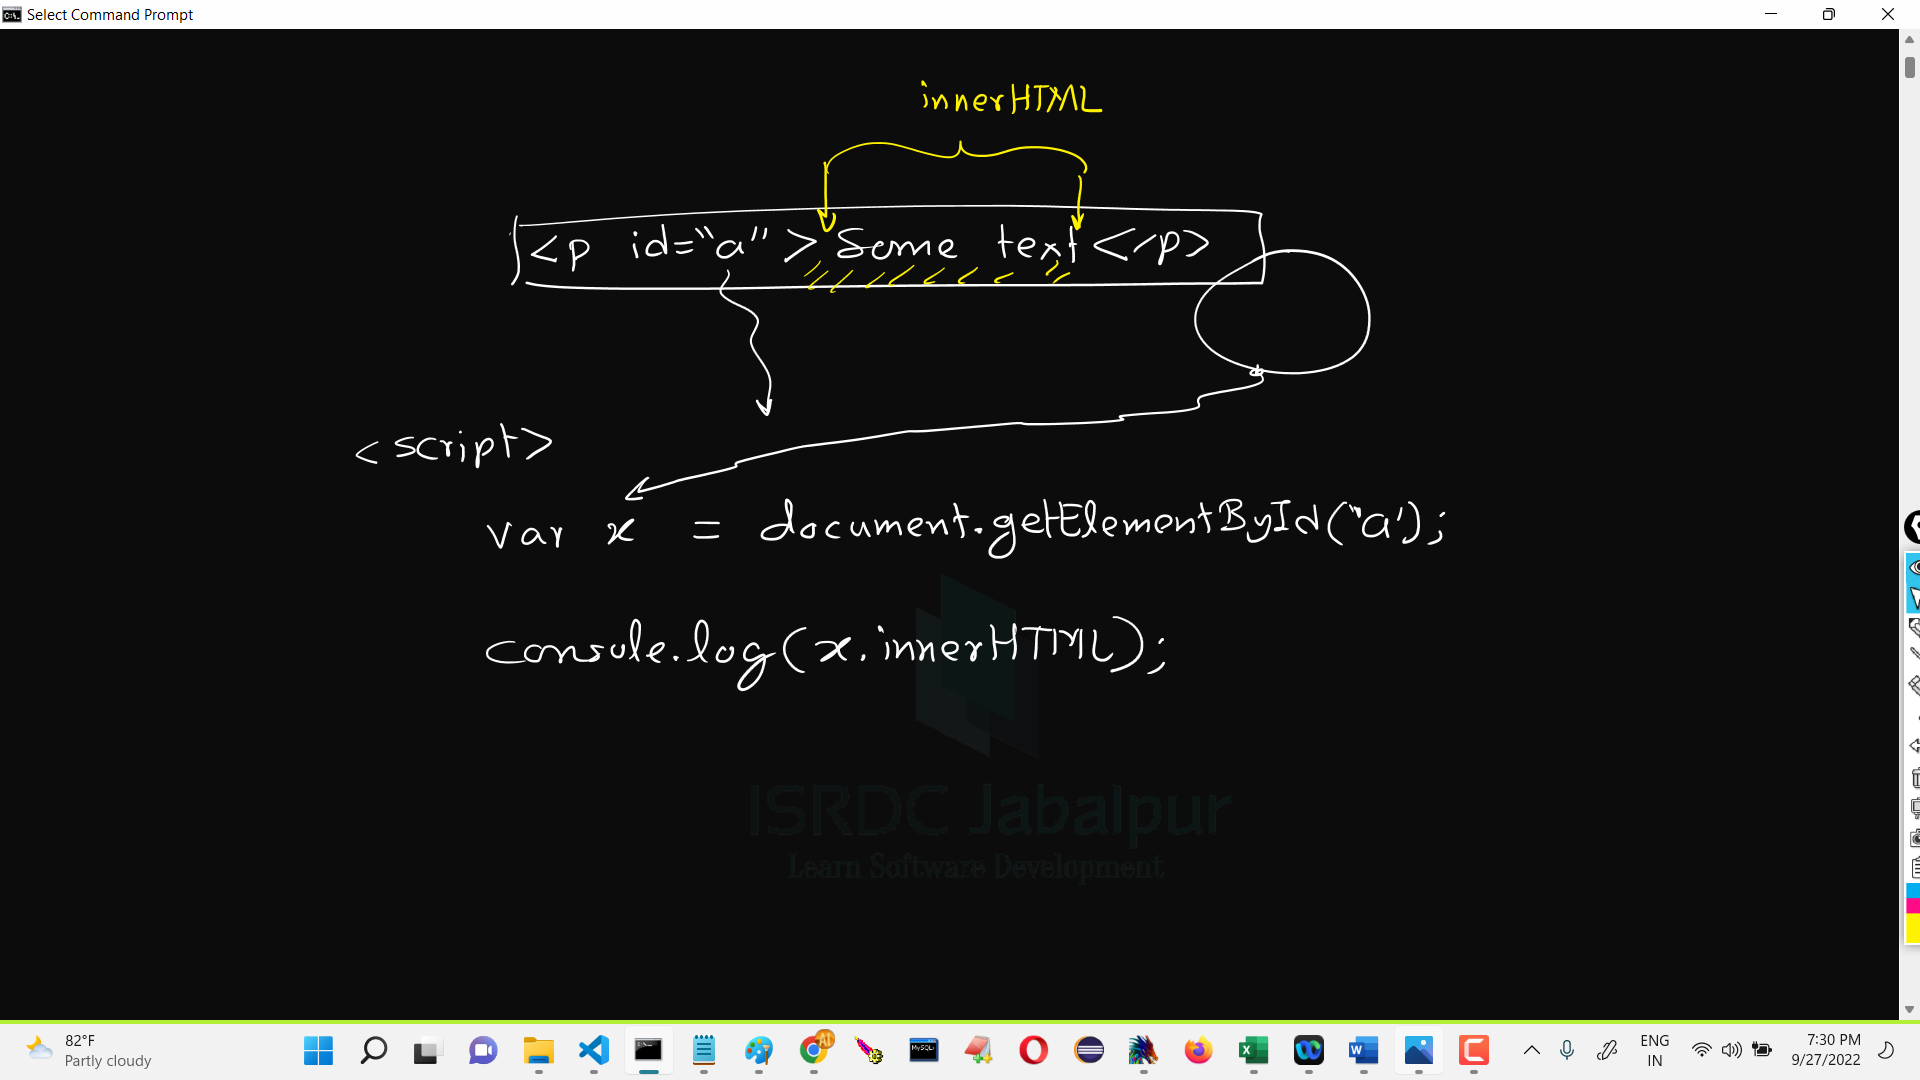 Select Command Prompt
innerHTML
<p id="a">Some text</p>
<script>
var x = document.getElementById("a');
console.log(x.innerHTML);
ISRDC Jabalpur
Learn Software Development
82°F
Partly cloudy
MySQL
AI
ENG
IN
7:30 PM
9/27/2022